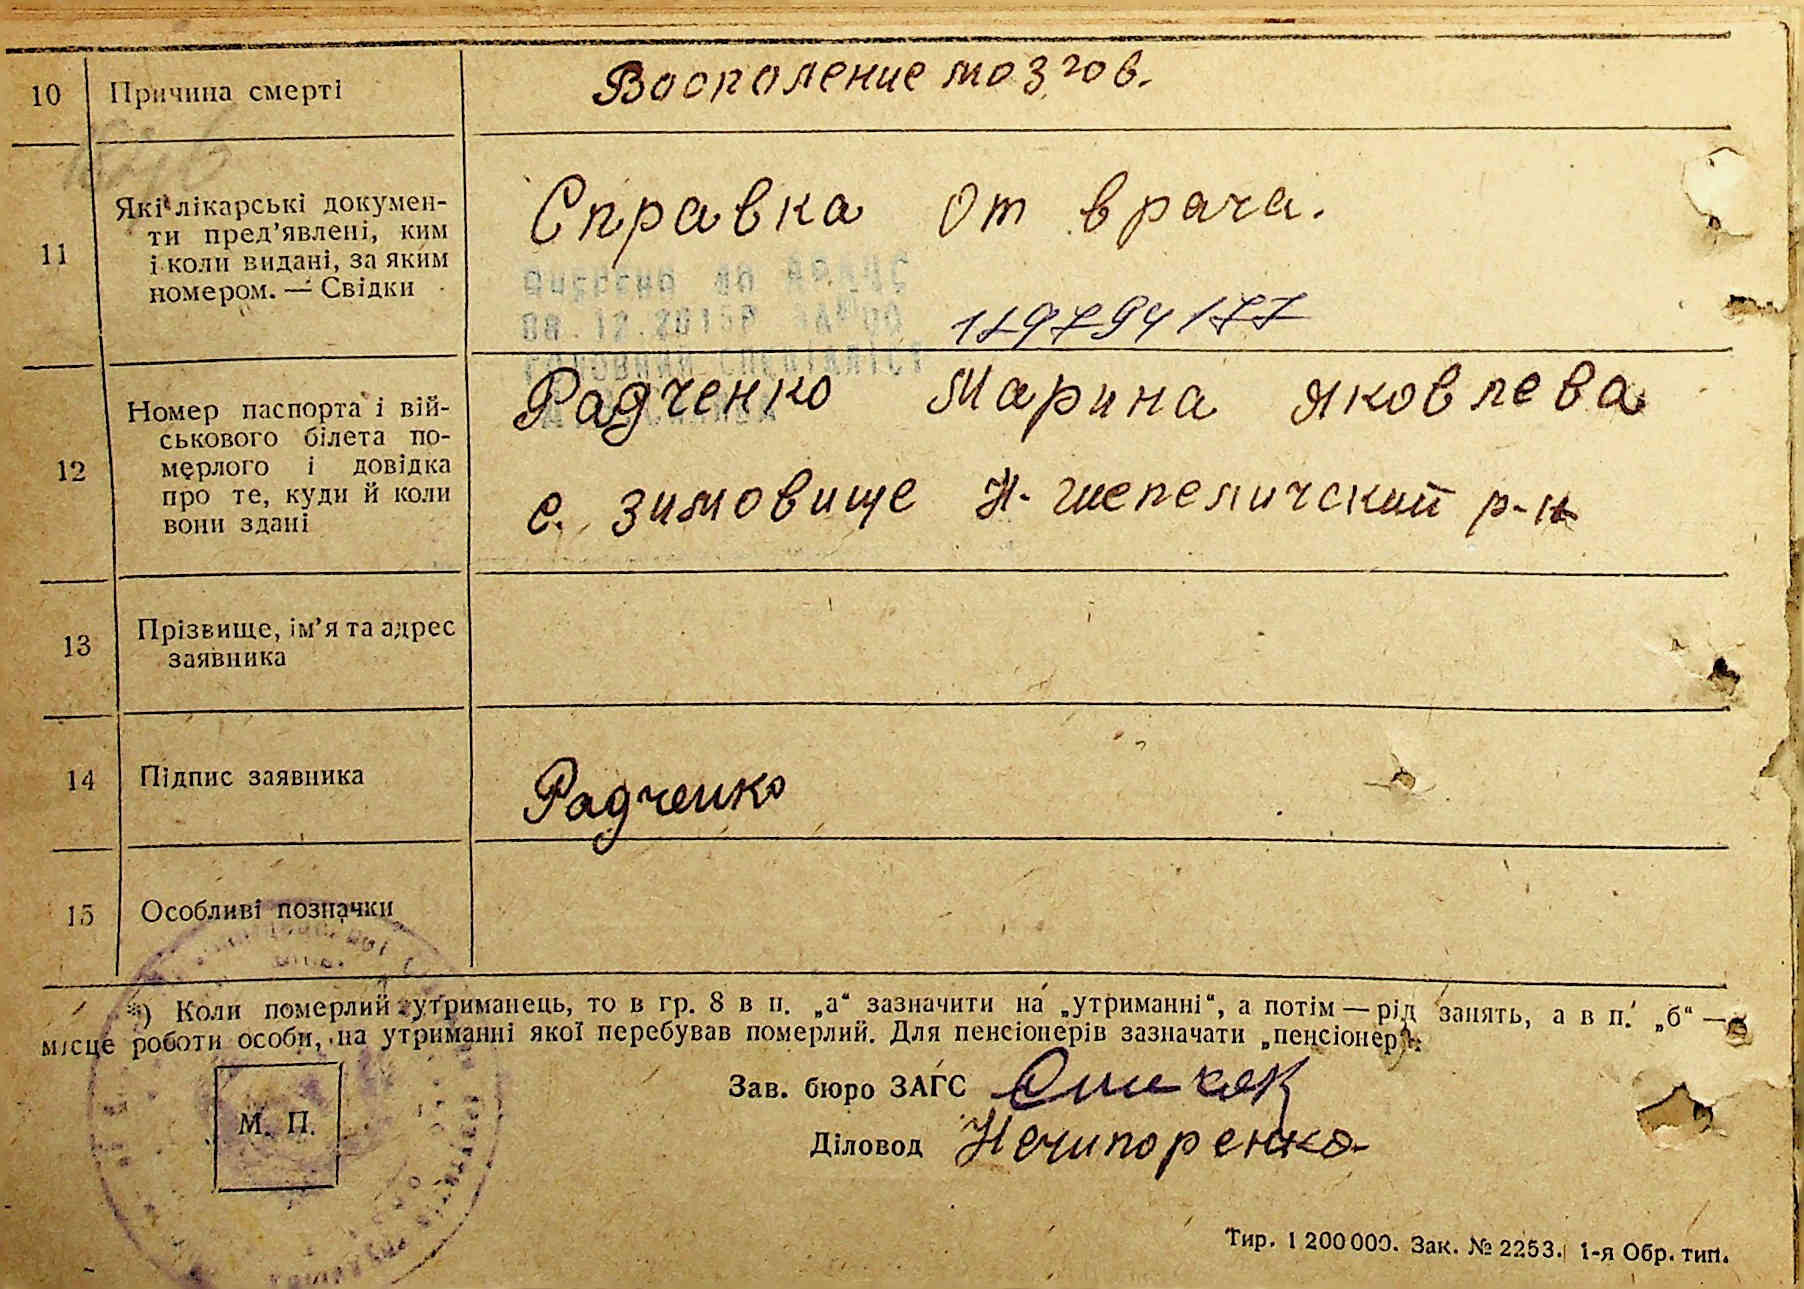 10 Причина смерті
Воспаление мозгов.
11 Які лікарські докумен-
ти пред’явлені, ким
і коли видані, за яким
номером. — Свідки
Справка от врача.
08.12.2015Р
головний спеціаліст
12 Номер паспорта і вій-
ськового білета по-
мерлого і довідка
про те, куди й коли
вони здані
Радченко Марина Яковлева
с. Зимовище Н-Шепеличский р-н
13 Прізвище, ім’я та адрес
заявника
14 Підпис заявника
Радченко
15 Особливі позначки
*) Коли померлий утриманець, то в гр. 8 в п. „а“ зазначити на „утриманні“, а потім — рід занять, а в п. „б“ —
місце роботи особи, на утриманні якої перебував померлий. Для пенсіонерів зазначати „пенсіонер“.
Зав. бюро ЗАГС
М. П.
Діловод Нечипоренко
Тир. 1 200 000. Зак. № 2253. 1-я Обр. тип.